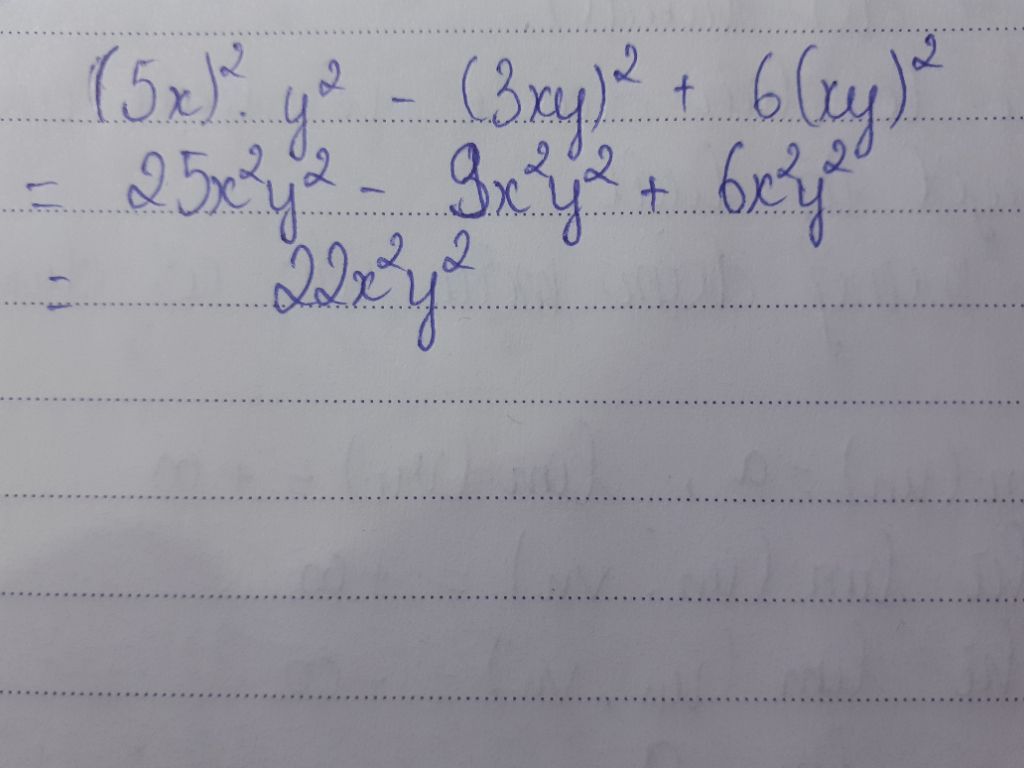 (5x)². y² - (3xy)² + 6(xy)²
= 25x²y² - 9x²y² + 6x²y²
= 22x²y²